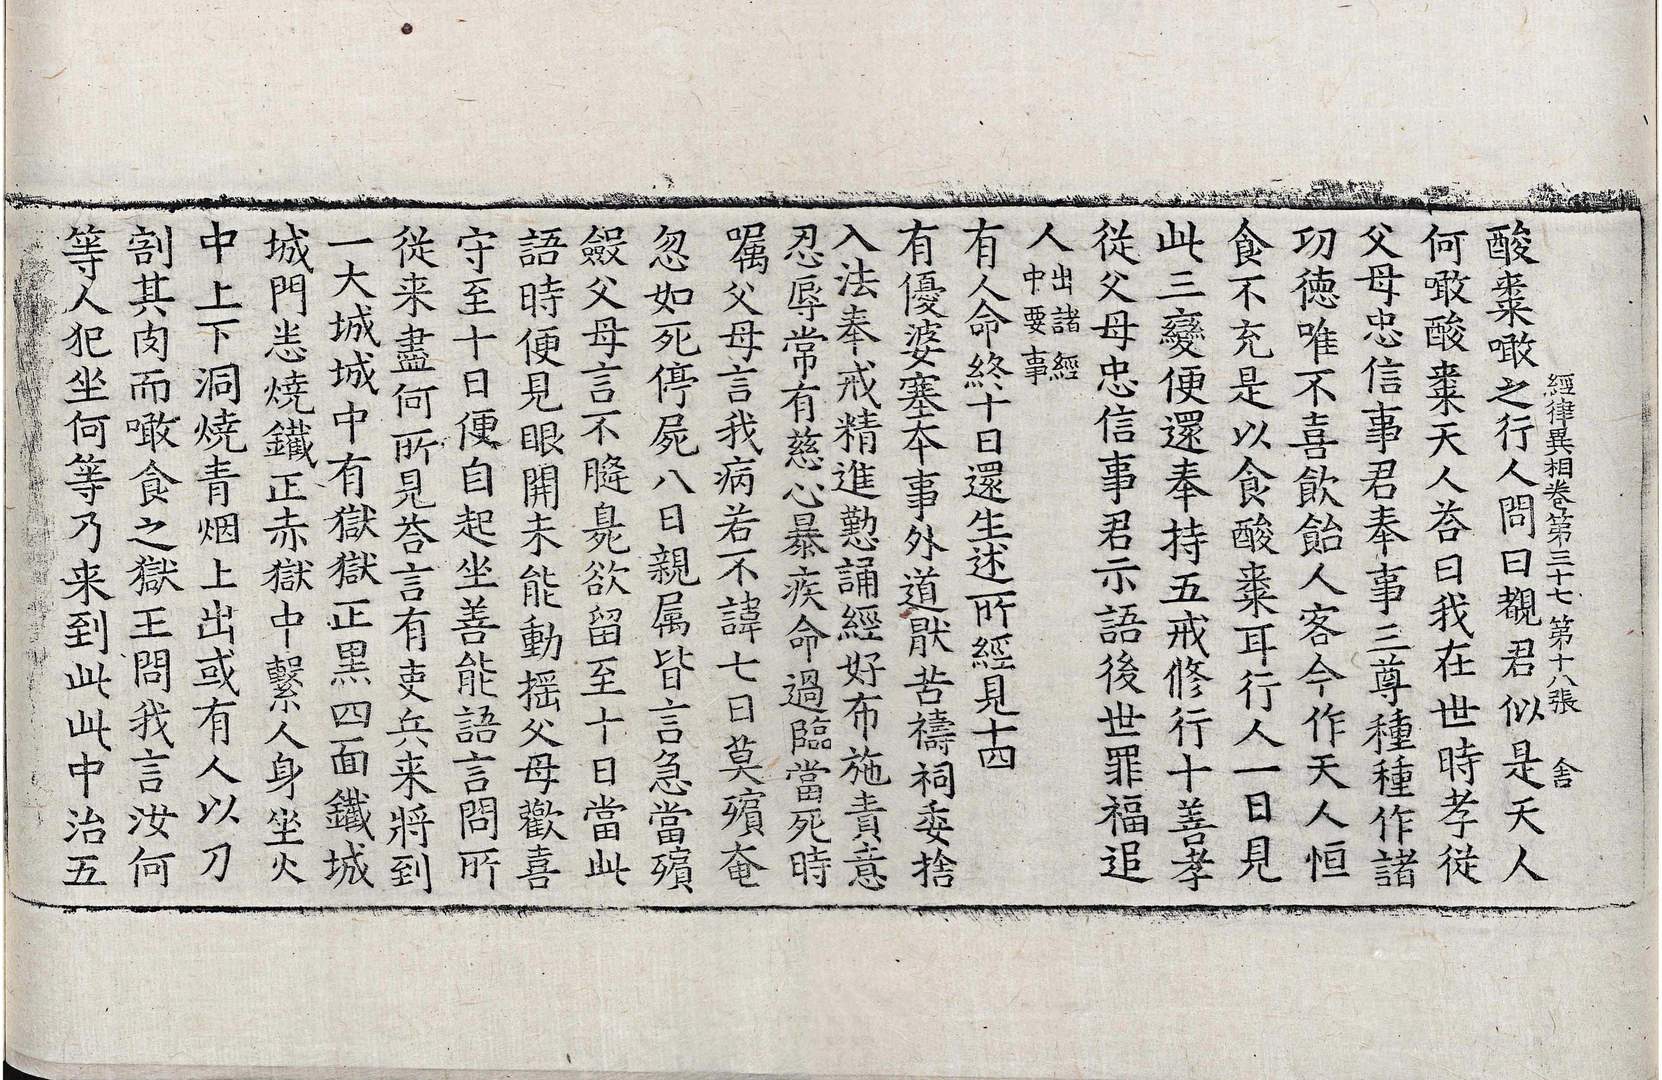 經律異相卷第三十七 第十八張 舍
酸棗噉之行人問曰覩君似是天人
何噉酸棗天人荅曰我在世時孝従
父母忠信事君奉事三尊種種作諸
功徳唯不喜飲飴人客今作天人恒
食不充是以食酸棗耳行人一日見
此三變便還奉持五戒修行十善孝
従父母忠信事君示語後世罪福追
人出諸經中要事
有人命終十日還生述所經見十四
有優婆塞本事外道厭苦禱祠委捨
入法奉戒精進懃誦經好布施責意
忍辱常有慈心暴疾命過臨當死時
嘱父母言我病若不諱七日莫殯奄
忽如死停屍八日親属皆言急當殯
殮父母言不膖臰欲留至十日當此
語時便見眼開未能動揺父母歡喜
守至十日便自起坐善能語言問所
從来盡何所見荅言有吏兵来將到
一大城城中有獄獄正黒四面鐵城
城門恚燒鐵正赤獄中繫人身坐火
中上下洞燒青烟上出或有人以刀
割其肉而噉食之獄王問我言汝何
等人犯坐何等乃来到此此中治五